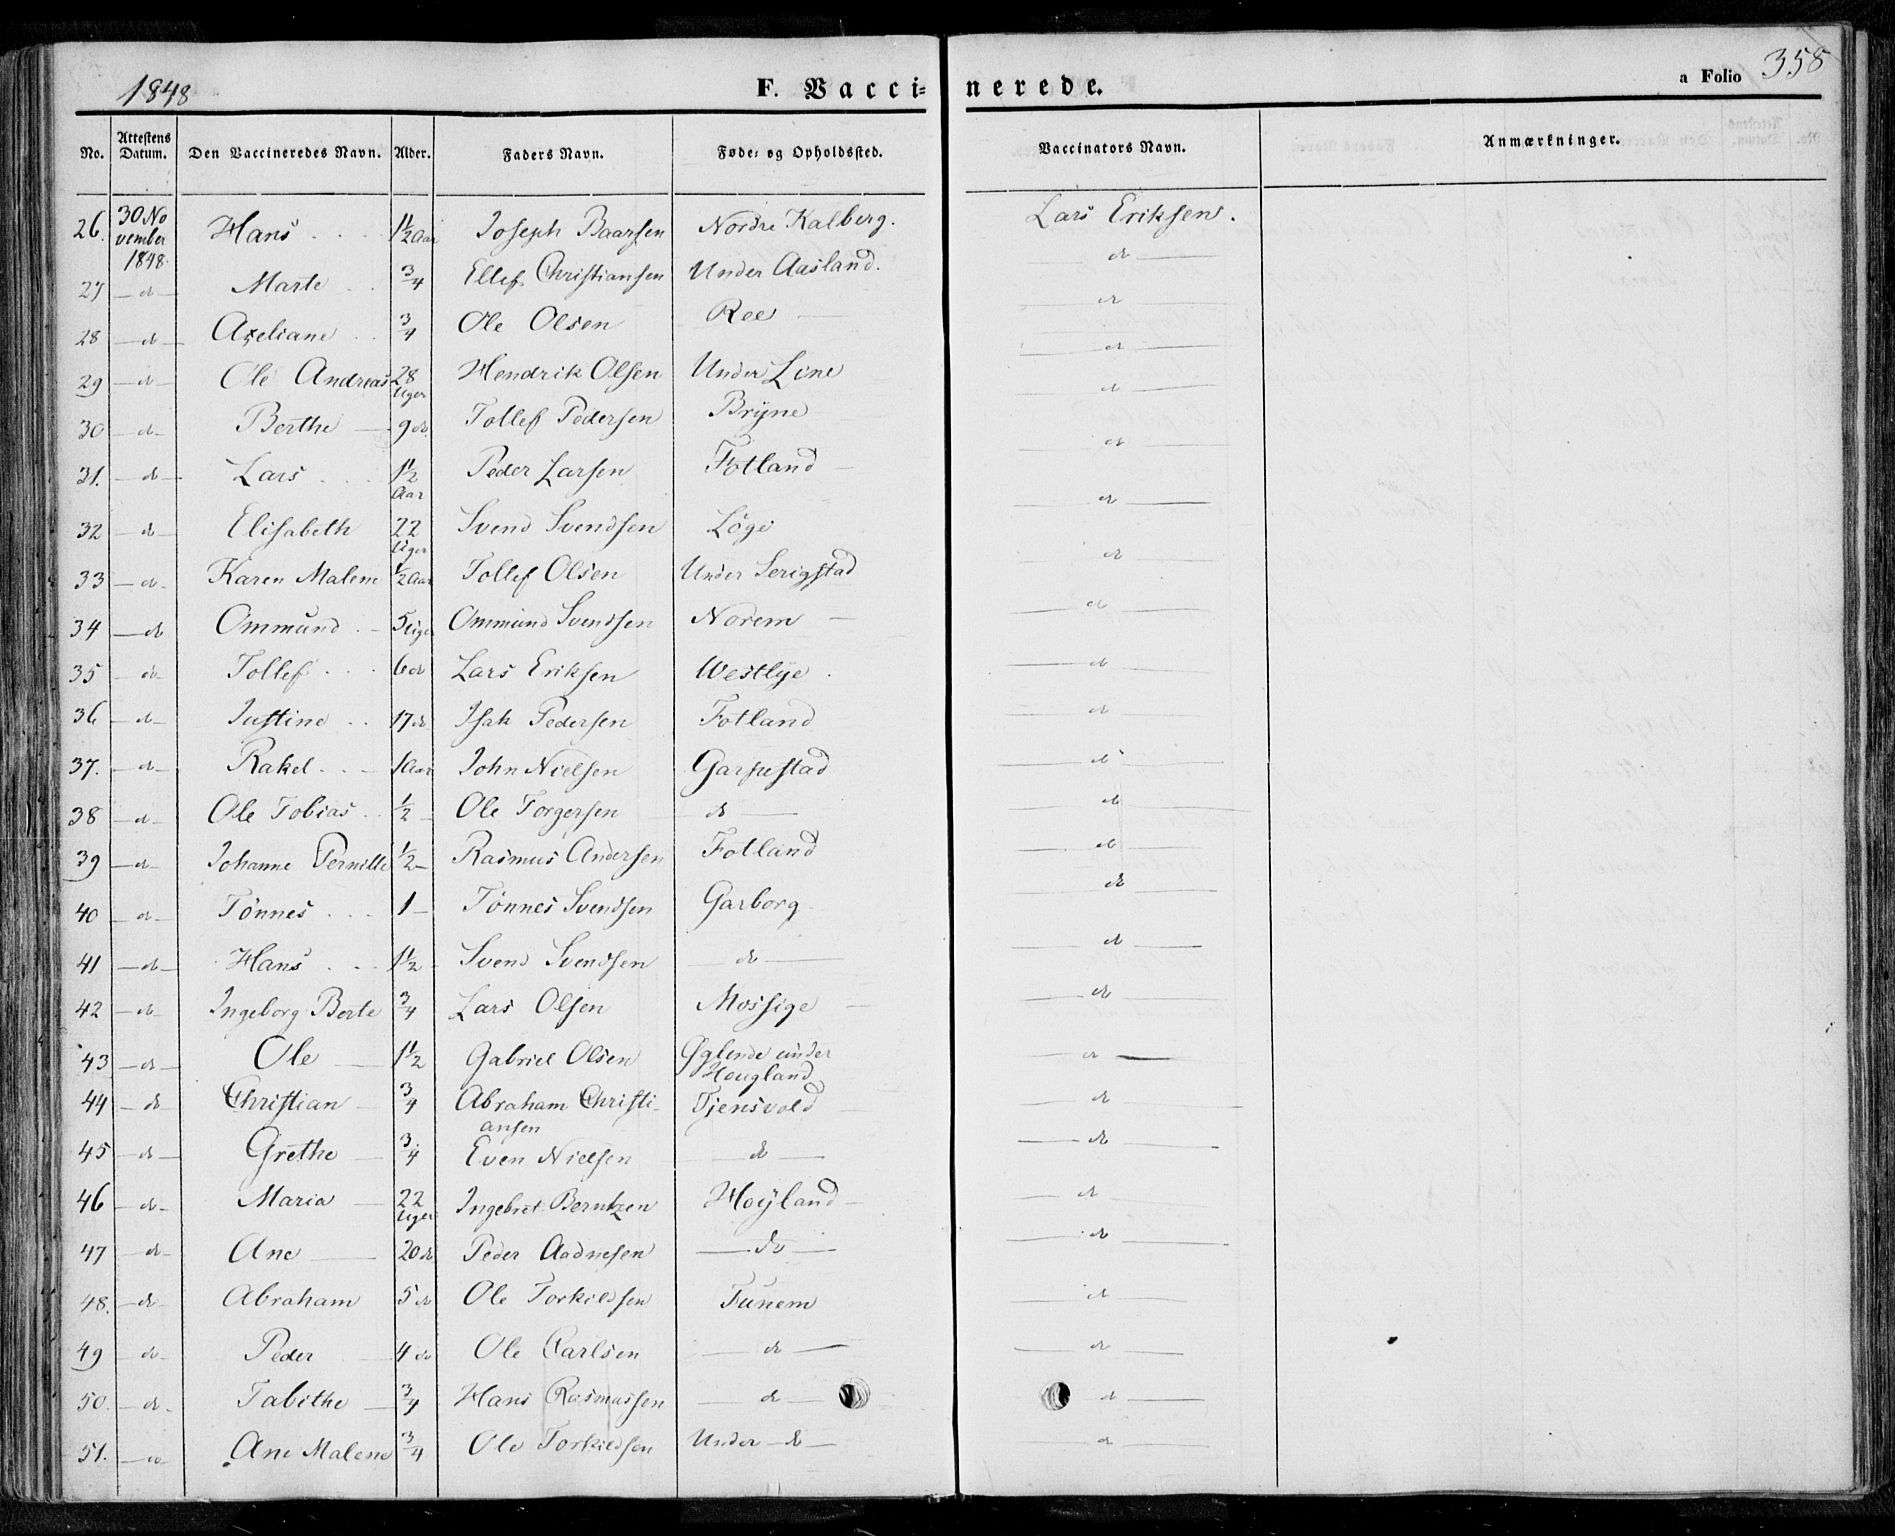 1848 F. Vaccinerede. a Folio 358
No. Attestens Datum. Den Vaccineredes Navn. Alder. Faders Navn. Føde- og Opholdssted. Vaccinators Navn. Anmærkninger.
26. 30 November 1848. Hans 1 1/2 Aar Joseph Baarsen Nordre Kalberg. Lars Eriksen.
27 — do — Marte 3/4 Ellef Christiansen Under Aasland. — do —
28 — do — Axeliane 3/4 Ole Olsen Ree — do —
29 — do — Ole Andreas 28 Uger Hendrik Olsen Under Line — do —
30 — do — Berthe 9 do Tollef Pedersen Bryne — do —
31. — do — Lars 1 1/2 Aar Peder Larsen Fotland — do —
32 — do — Elisabeth 22 Uger Svend Svendsen Löge — do —
33 — do — Karen Malene 1/2 Aar Tollef Olsen Under Serigstad — do —
34 — do Ommund 5 Uger Ommund Svendsen Norem — do —
35 — do — Tollef 6 do Lars Eriksen Westlye. — do —
36 — do — Justine 17 do Isak Pedersen Fotland — do —
37. — do — Rakel 1 Aar John Nielsen Garpestad — do —
38 — do — Ole Tobias 1/2 Ole Torgersen — do — — do —
39 — do — Johanne Pernille 1/2 Rasmus Andersen Fotland — do —
40 — do — Tönnes 1 — Tönnes Svendsen Garborg — do —
41 — do — Hans 1 1/2 Svend Svendsen — do — — do —
42 — do — Ingeborg Berte 3/4 Lars Olsen Mossige — do —
43 — do — Ole 1 1/2 Gabriel Olsen Øglende under Hougland — do —
44 — do — Christian 3/4 Abraham Christiansen Tjensvold — do —
45 — do — Grethe 3/4 Even Nielsen — do — — do —
46 — do — Maria 22 Uger Ingebret Berntzen Hoyland — do —
47 — do — Ane 20 do Peder Aadnesen — do — — do —
48. — do — Abraham 5 do Ole Torkildsen Tunem — do —
49 — do — Peder 4 do Ole Carlsen — do — — do —
50. — do — Tabithe 3/4 Hans Rasmussen — do — — do —
51. — do — Ane Malene 3/4 Ole Torkildsen Under — do — — do —